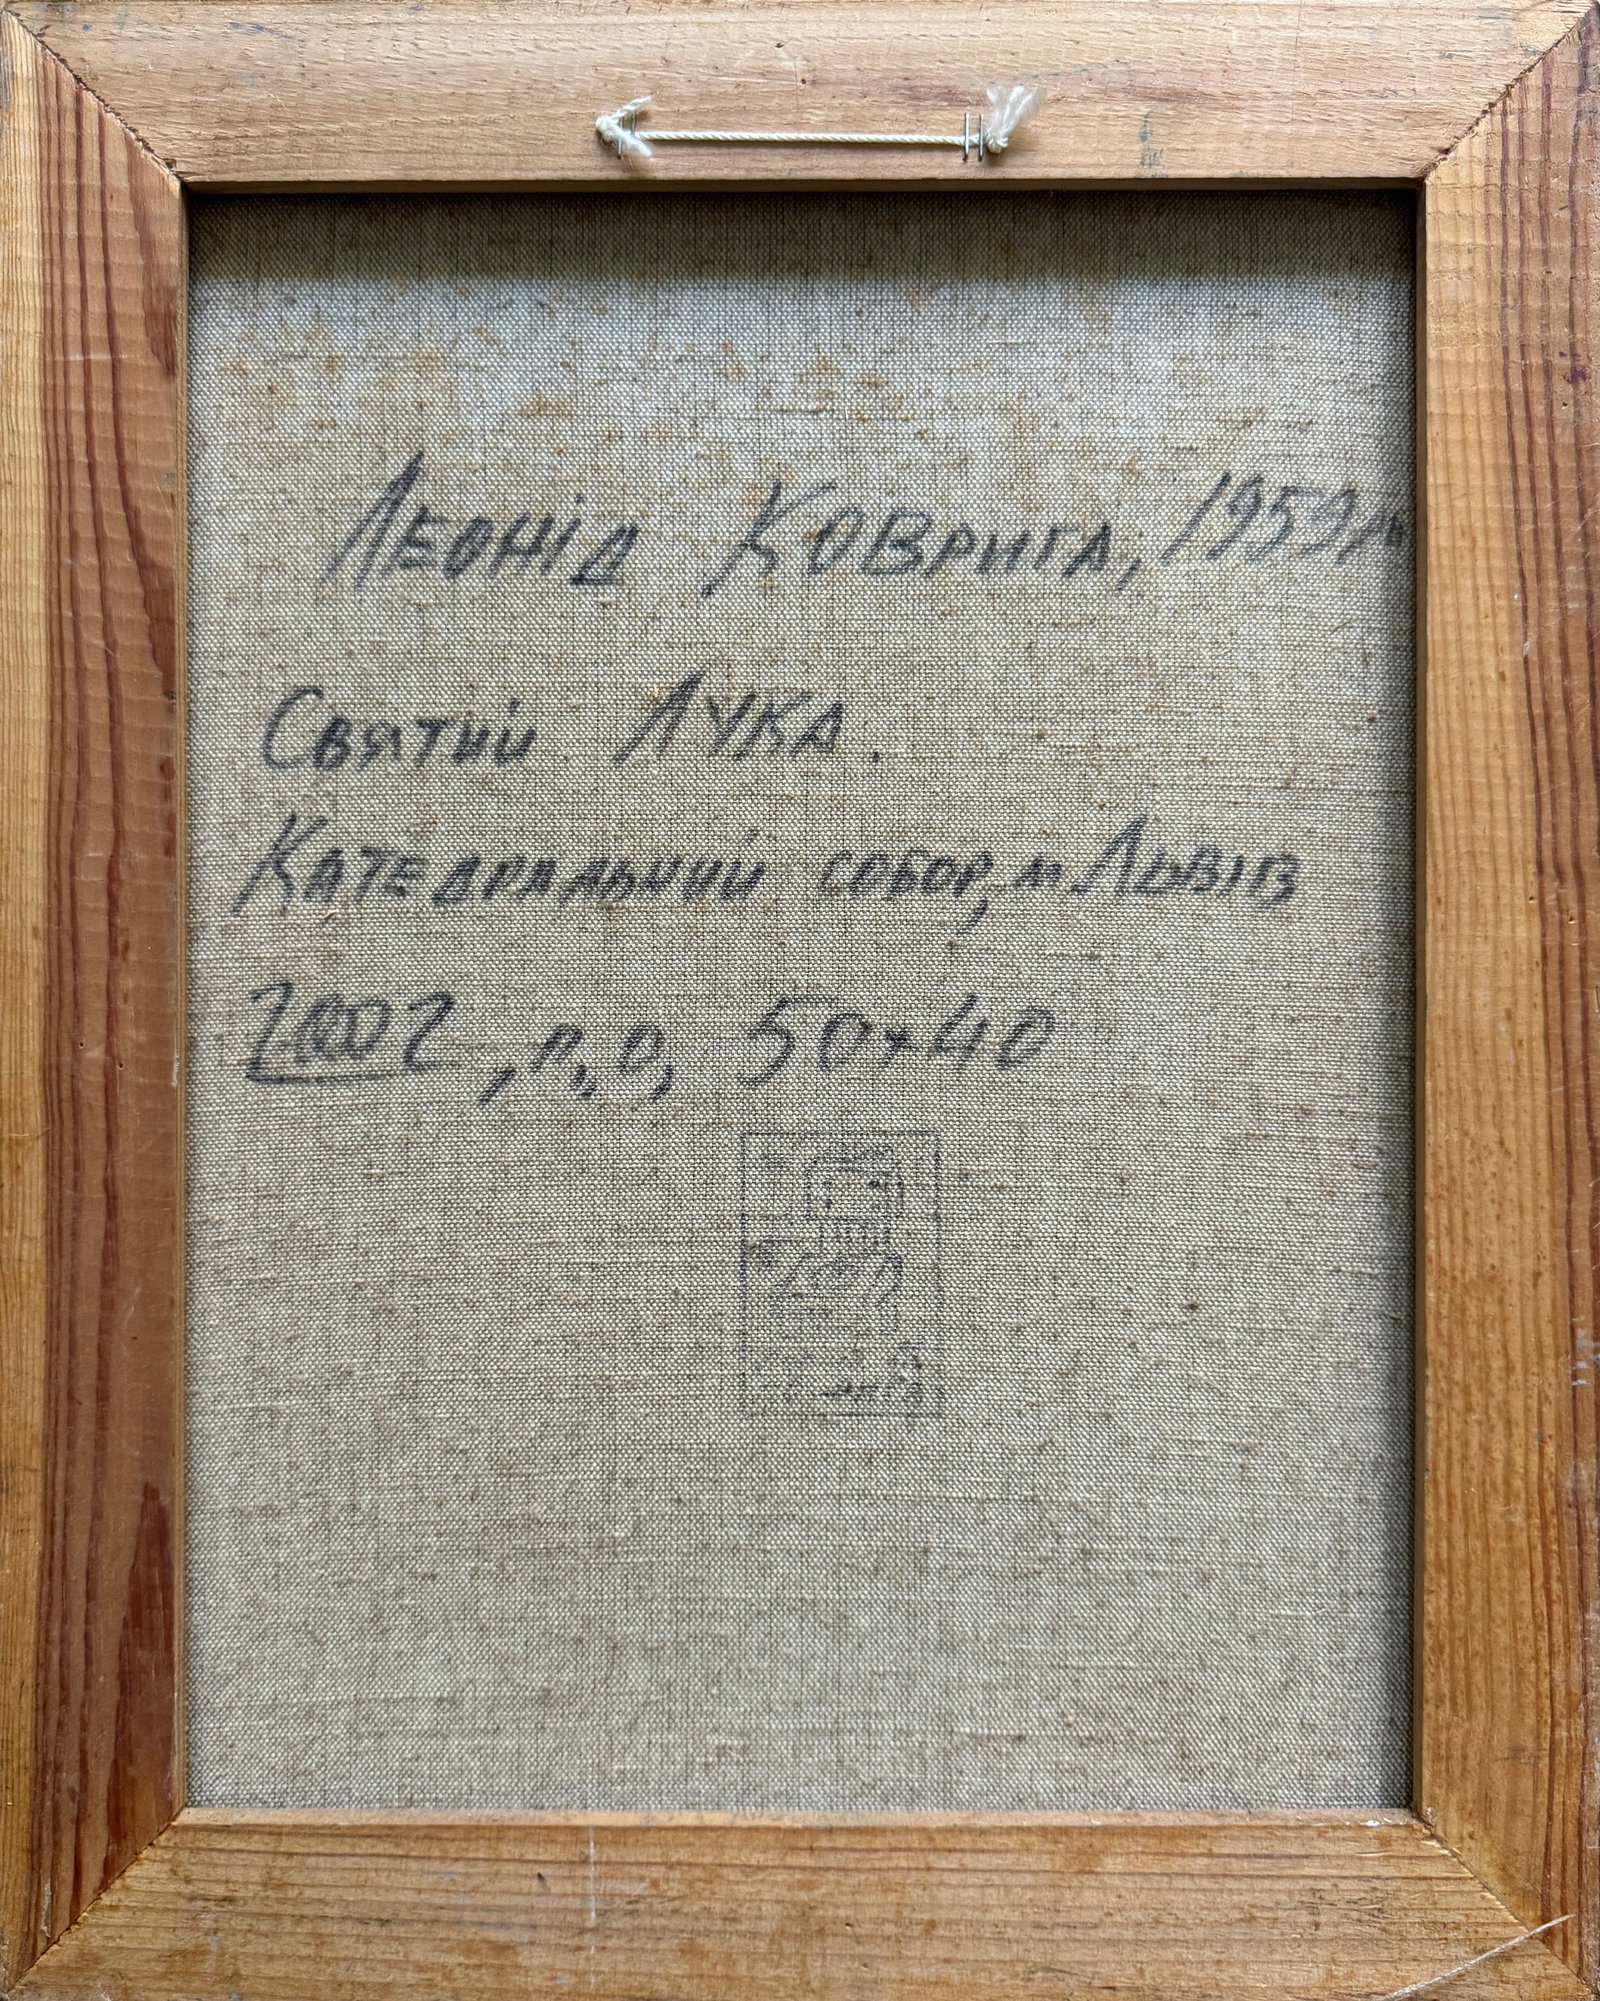 Леонід Коврига, 1959
Святий Лука.
Катедральний собор, м Львів
2002, п, о, 50×40